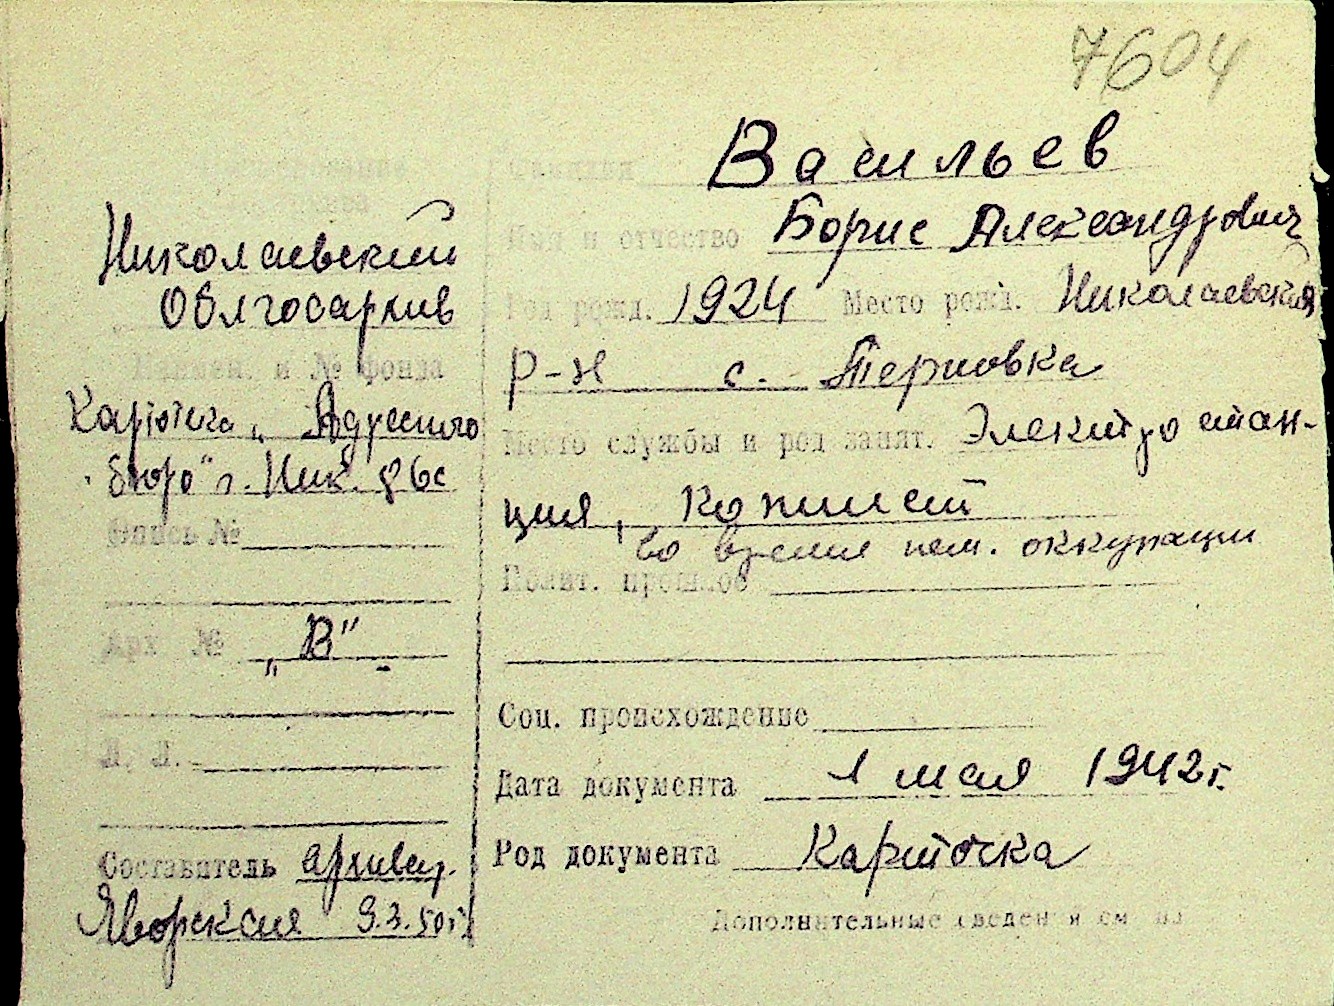 7604
Наименование
архива
Николаевский
Облгосархив
Наимен. и № фонда
Картотека „Адресного
бюро" г. Ник.
Опись №
Арх №
„В"
Л. Л.
Составитель архивар.
Яворская 9.3.50г.
Фамилия Васильев
Имя и отчество Борис Александрович
Год рожд. 1924 Место рожд. Николаевский
р-н с. Терновка
Место службы и род занят. Электростан-
ция,
во время нем. оккупации
Полит. прошлое
Соц. происхождение
Дата документа 1 мая 1942г.
Род документа Карточка
Дополнительные сведения см. на